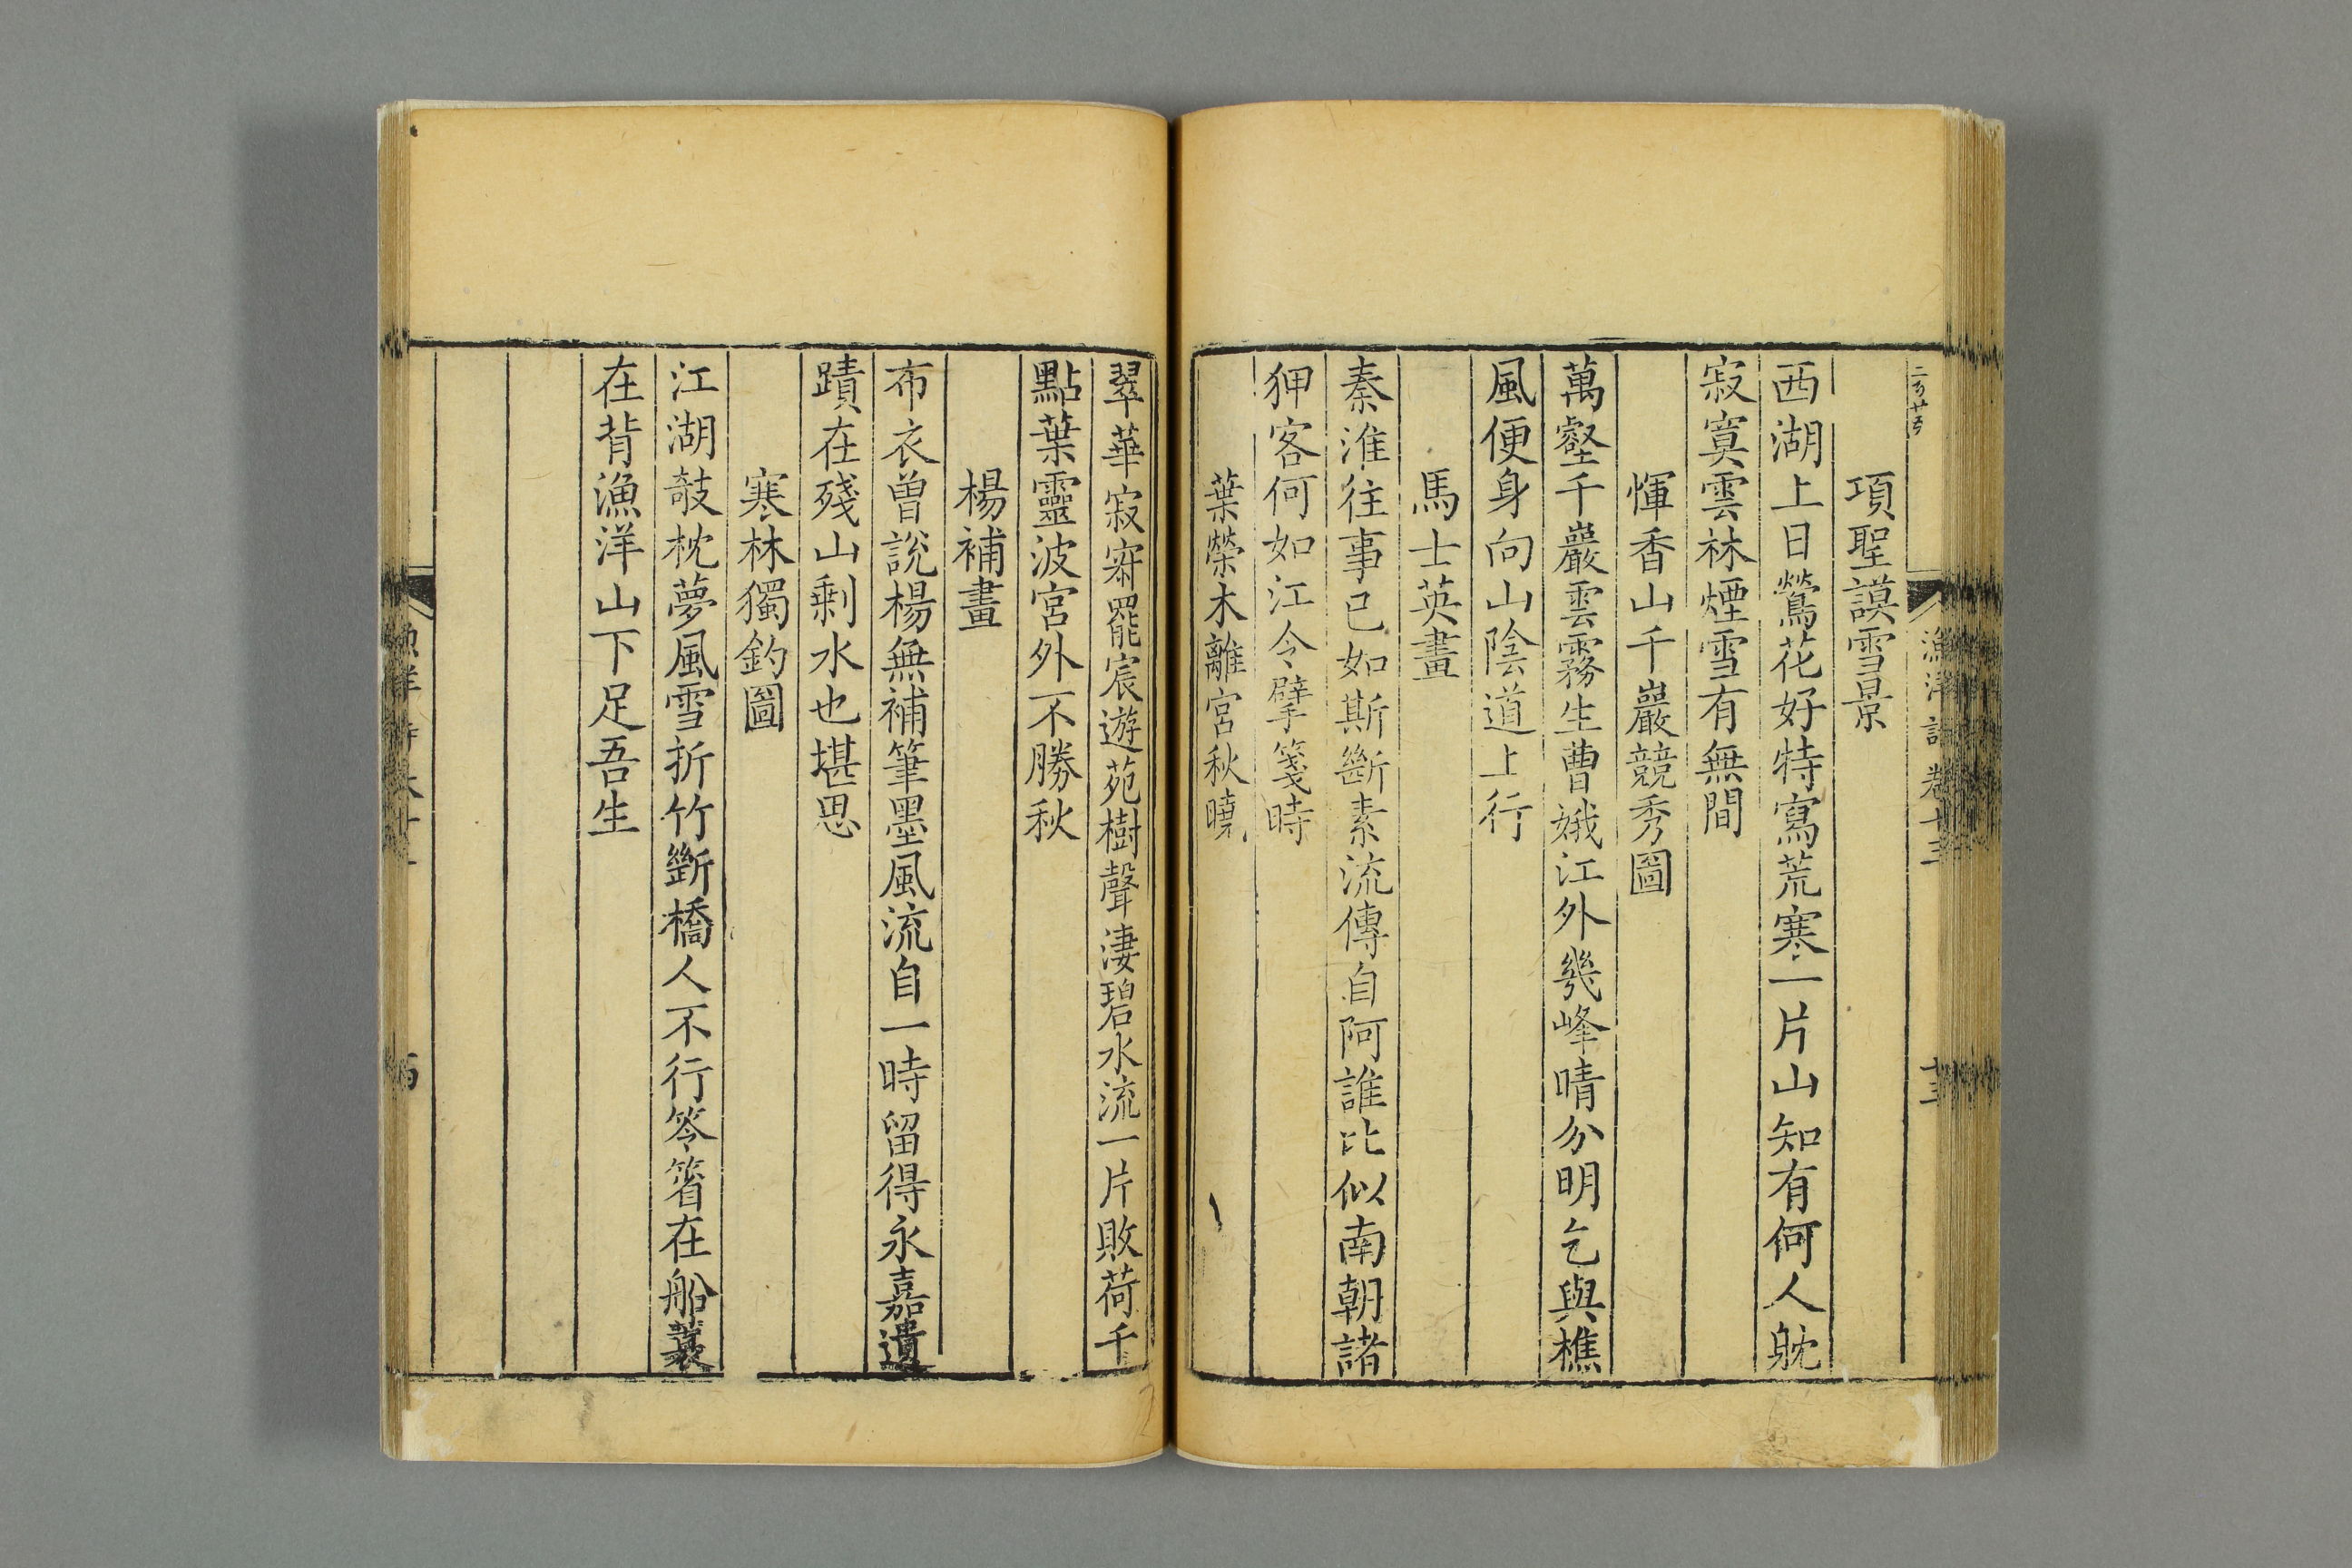 項聖謨雪景
西湖上日鶯花好特寫荒寒一片山知有何人躭
寂寞雲林煙雪有無間
惲香山千巖競秀圖
萬壑千巖雲霧生曹娥江外幾峰晴分明乞與樵
風便身向山陰道上行
馬士英畫
秦淮往事已如斯斷素流傳自阿誰比似南朝諸
狎客何如江令擘箋時
葉榮木離宮秋曉
翠華寂寞罷宸遊苑樹聲淒碧水流一片敗荷千
點葉靈波宮外不勝秋
楊補畫
布衣曾說楊無補筆墨風流自一時留得永嘉遺
蹟在殘山剩水也堪思
寒林獨釣圖
江湖攲枕夢風雪折竹斷橋人不行笭箵在船蓑
在背漁洋山下足吾生